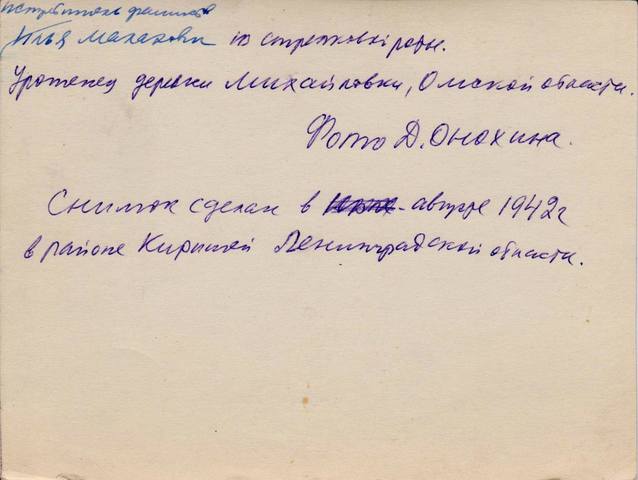 Истребитель фашистов
Илья Макахови из стрелковой роты.
Уроженец деревни Михайловки, Омской области.
Фото Д. Онохина.
Снимок сделан в августе 1942 г
в районе Киришей Ленинградской области.